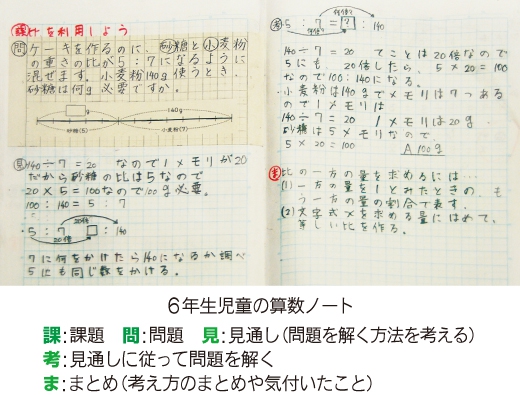 課 比を利用しよう
問 ケーキを作るのに、砂糖と小麦粉
の重さの比が5:7になるように
混ぜます。小麦粉140g使うとき、
砂糖は何g必要ですか。
□g 140g
砂糖(5) 小麦粉(7)
見 140÷7=20 なので1メモリが20
だから砂糖の比は5なので
20×5=100なので100g必要。
100:140=5:7
20倍
5:7 □:140
20倍
7に何をかけたら140になるか調べ
5にも同じ数をかける。
考 何倍?
5:7=?:140
何倍?
140÷7=20 てことは20倍なので
5にも、20倍したら、5×20=100
なので100:140になる。
小麦粉は140gでメモリは7つある
ので1メモリは
140÷7=20 1メモリは20g.
砂糖は5メモリなので、
5×20=100 A 100g
ま 比の一方の量を求めるには…
(1)一方の量を1とみたときの、も
う一方の量の割合で表す。
(2)文字式xを求める量にはめて、
等しい比を作る。
6年生児童の算数ノート
課:課題 問:問題 見:見通し(問題を解く方法を考える)
考:見通しに従って問題を解く
ま:まとめ(考え方のまとめや気付いたこと)